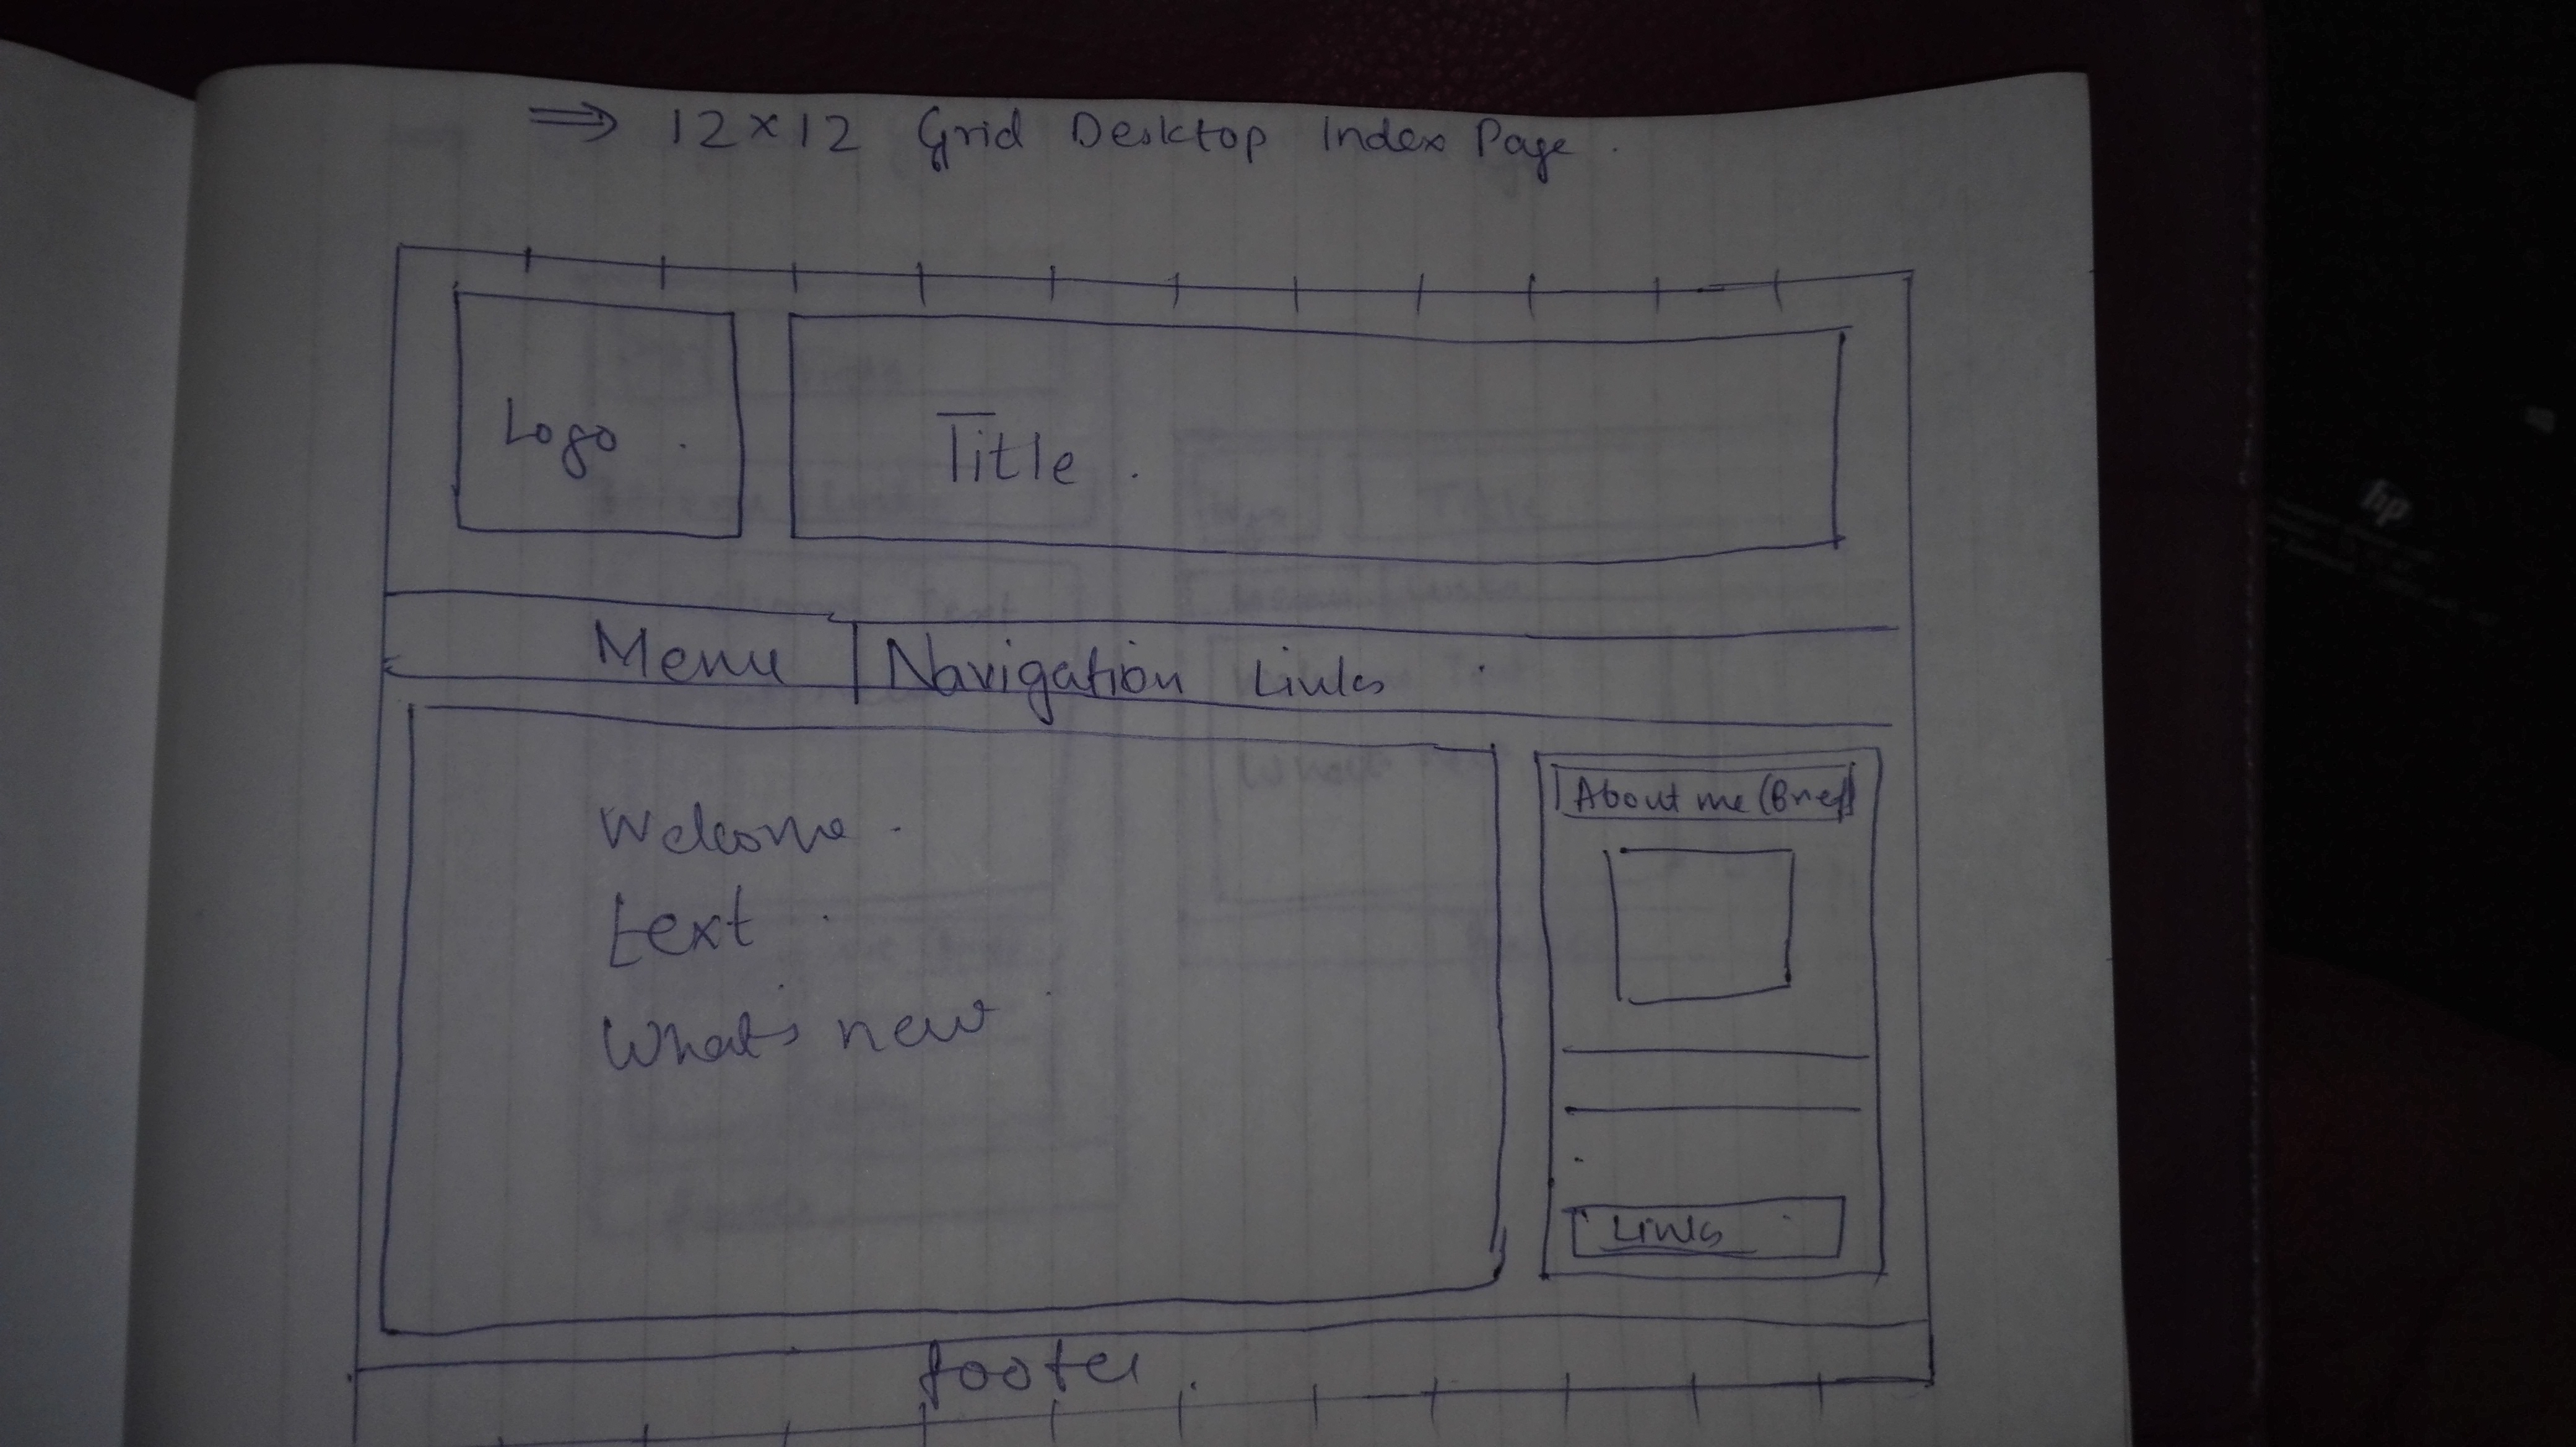 ⇒ 12×12 Grid Desktop Index Page.
Logo.
Title.
Menu | Navigation Links.
Welcome.
text.
What's new
About me (Brief)
Links
footer.
hp